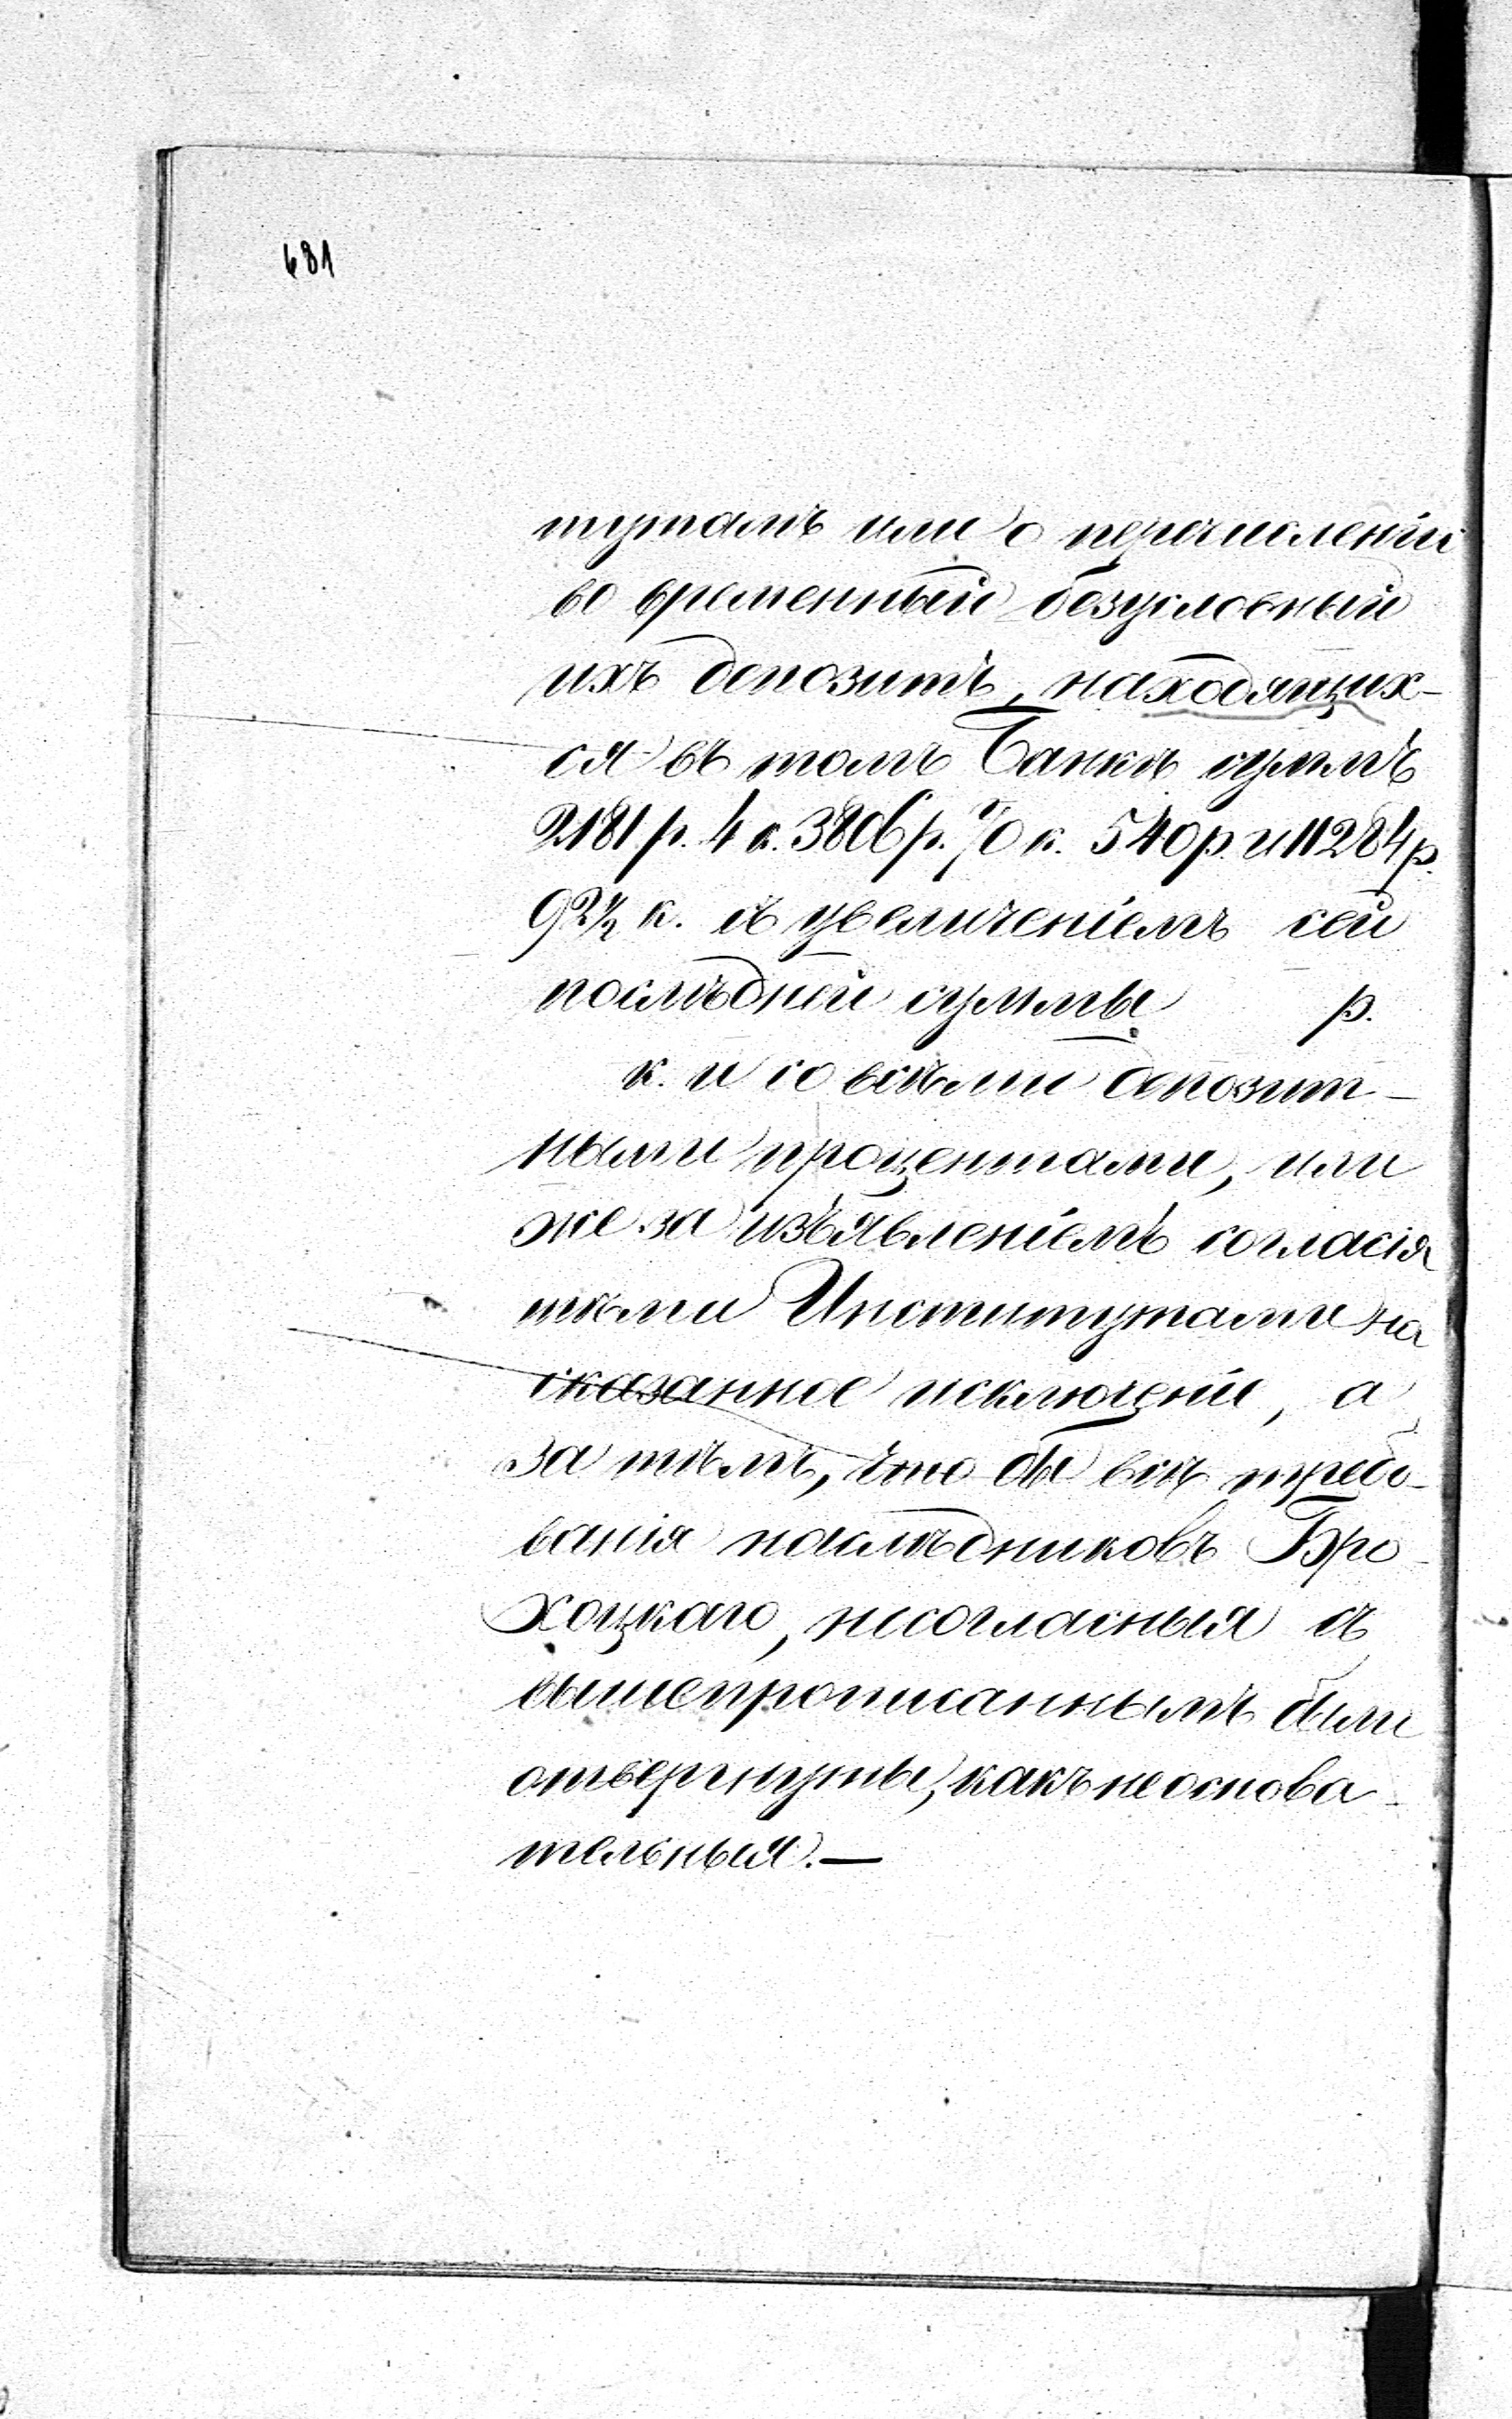 681
тутамъ или о перечисленіи
во временный безусловный
ихъ депозитъ, находящих-
ся въ томъ Банкѣ суммъ
2181 р. 4 к. 3806 р. 70 к. 540 р. и 11284 р.
92½ к. съ увеличеніемъ сей
послѣдней суммы р.
к. и со всѣми депозит-
ными процентами, или
же за изъявленіемъ согласія
тѣми Институтами на
сказанное исключеніе, а
за тѣмъ, что бы всѣ требо-
ванія наслѣдниковъ Бро-
хоцкаго, несогласныя съ
вышепрописаннымъ были
отвергнуты, какъ неоснова-
тельныя.—